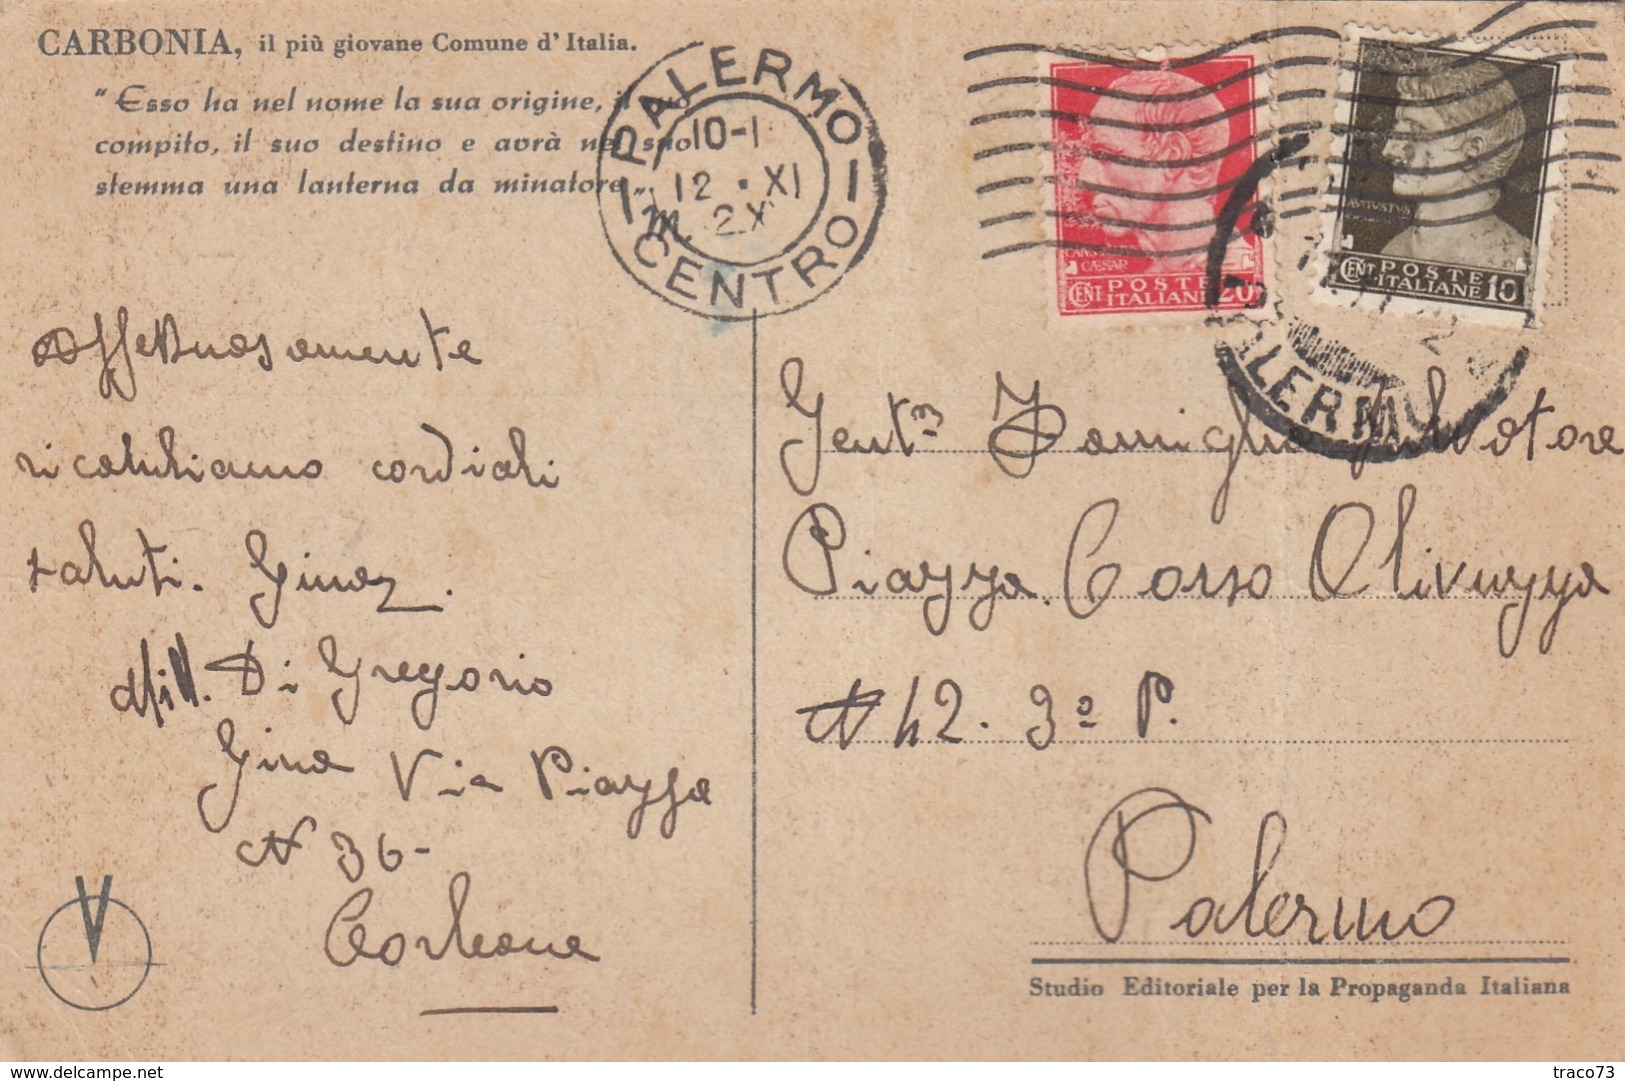 CARBONIA, il più giovane Comune d'Italia.
"Esso ha nel nome la sua origine, il suo
compito, il suo destino e avrà nel suo
stemma una lanterna da minatore„
PALERMO
10-1
12 · XI
CENTRO
CÆSAR
CENT POSTE ITALIANE 20
AVGVSTVS
CENT POSTE ITALIANE 10
PALERMO
Affettuosamente
ricambiamo cordiali
saluti. Gina.
Mitt. Di Gregorio
Gina Via Piazza
N 36-
Corleone
Gent.
Famiglia Salvatore
Piazza. Corso Olivuzza
N 42. 3º P.
Palermo
Studio Editoriale per la Propaganda Italiana
traco73